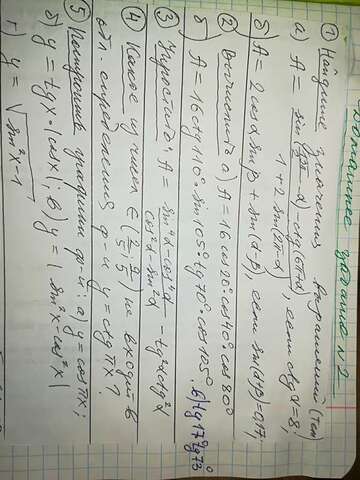 Домашнее задание №2
① Найдите значения выражений (тем)
а) A = sin(2π-α)-ctg(6π-α) / 1+2 sin(2π-α), если ctg α = 8;
б) A = 2 cosα sinβ + sin(α-β), если sin(α+β)=0,17;
② Вычислить а) A = 16 cos20° cos40° cos80°
б) A = 16 ctg110° sin105° tg70° cos105°; в) tg17° tg73°
③ Упростить: A = sin⁴α-cos⁴α / cos²α-sin²α - tg²α ctg²α
④ Какое из чисел ∈ (2/5; 9/5) не входит в
обл. определения ф-и y = ctg πx?
⑤ Построить графики ф-и: а) y = cos πx;
б) y = tgx·|cosx|; в) y = |sin²x-cos²x|
г) y = √sin²x-1